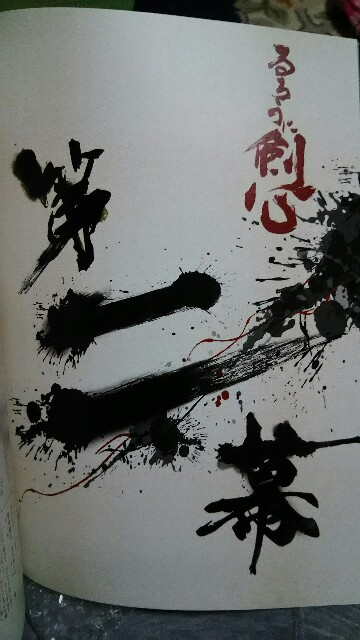 るろうに
剣心
第
二
幕